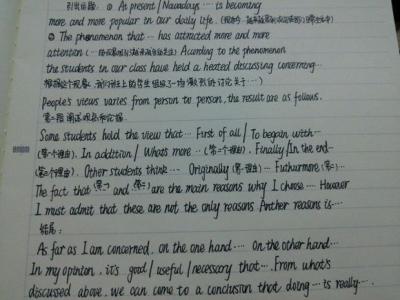 引出话题: ① At present / Nowadays ···· is becoming
more and more popular in our daily life.
② The phenomenon that ··· has attracted more and more
attention ( ··· ) According to the phenomenon
the students in our class have held a heated discussing concerning···
根据这个现象, 我们班上的学生组织了一场激烈的讨论关于···)
People's views varies from person to person, the result are as follows.
第二段 阐述观点和论据
Some students hold the view that··· First of all / To begain with···
(第一个理由). In addition / What's more ··· (第二个理由), Finally / In the end···
(第三个理由). Other students think··· Originally (第一理由)··· Futhurmore (第二)···
The fact that (第一) and (第二) are the main reasons why I choose···· However
I must admit that these are not the only reasons Anther reasons is···
结尾:
As far as I am concerned, on the one hand···· on the other hand···
In my opinion, it's good / useful / necessary that···. From what's
discussed above, we can come to a conclusion that doing ··· is really···.